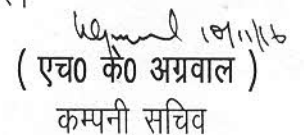 10/11/16
( एच0 के0 अग्रवाल )
कम्पनी सचिव